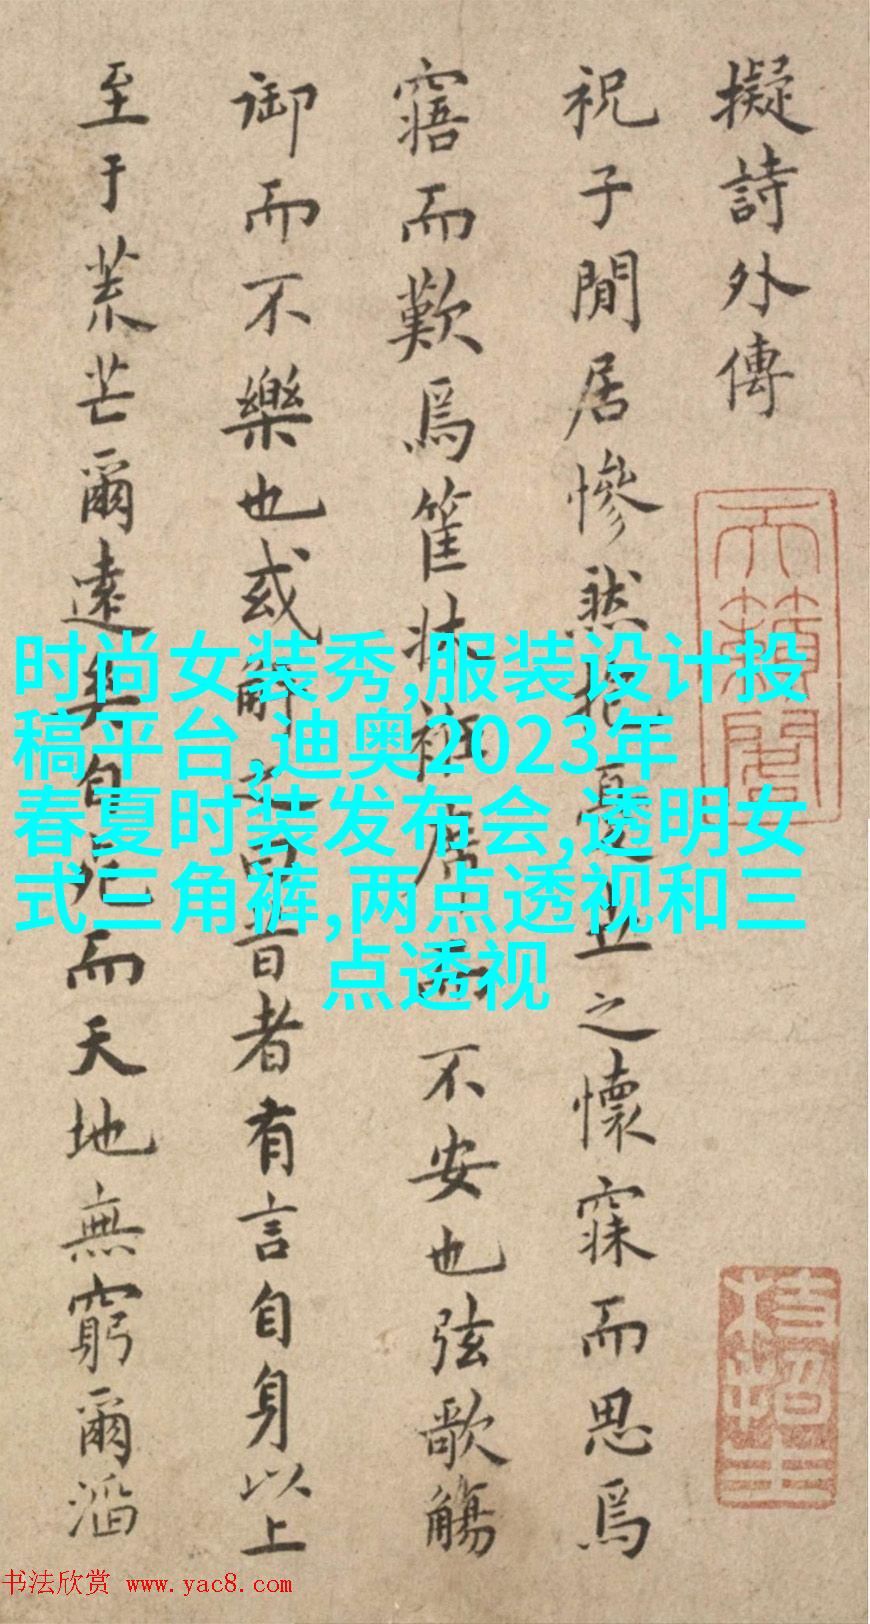 擬詩外傳
祝子閒居慘然抱憂世之懷寐而思焉
寤而歎焉筐牀衽席而不安也弦歌觴
御而不樂也或解之曰昔者有言自身以上
至于荒芒爾遠矣自死而天地無窮爾滔
时尚女装秀,服装设计投
稿平台,迪奥2023年
春夏时装发布会,透明女
式三角裤,两点透视和三
点透视
书法欣赏 www.yac8.com